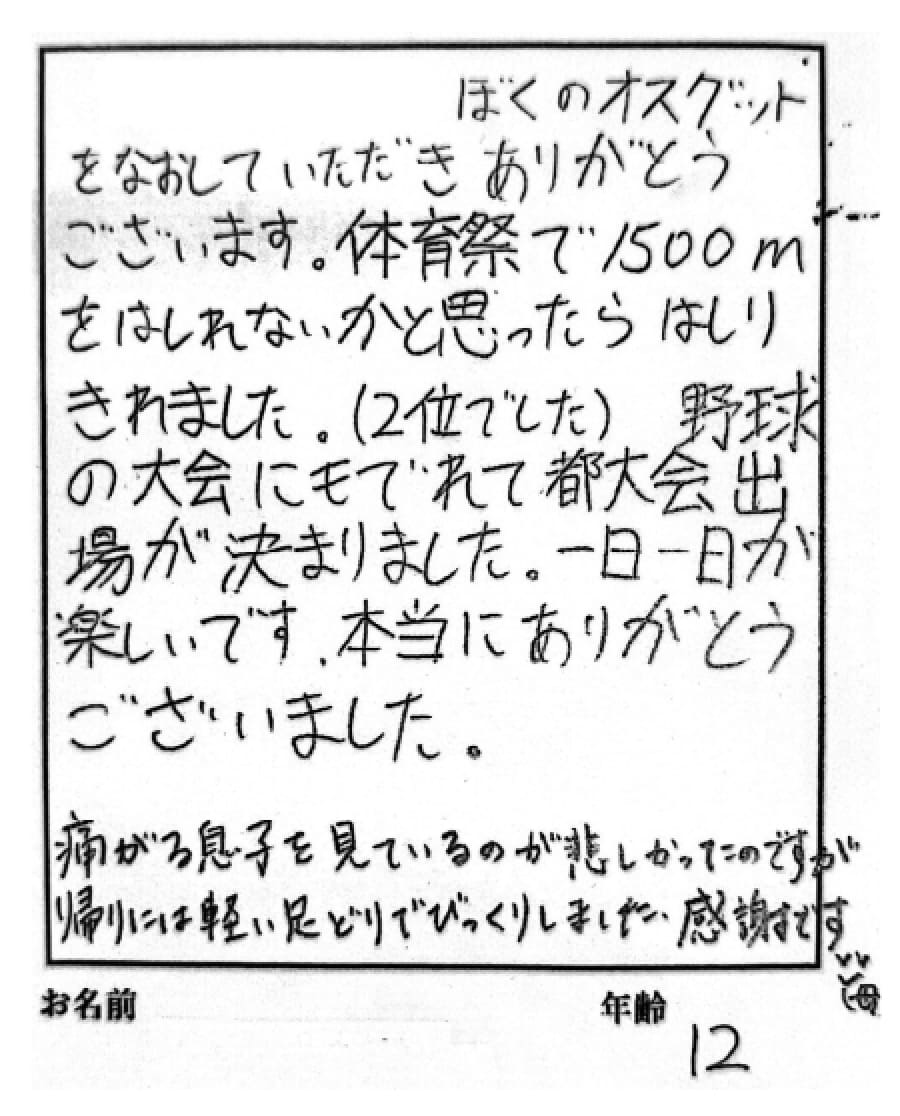 ぼくのオスグット
をなおしていただき ありがとう
ございます。体育祭で1500m
をはしれないかと思ったら はしり
きれました。(2位でした) 野球
の大会にもでれて都大会出
場が決まりました。一日一日が
楽しいです。本当にありがとう
ございました。
痛がる息子を見ているのが悲しかったのですが
帰りには軽い足どりでびっくりしました。感謝です
(母
お名前 年齢
12